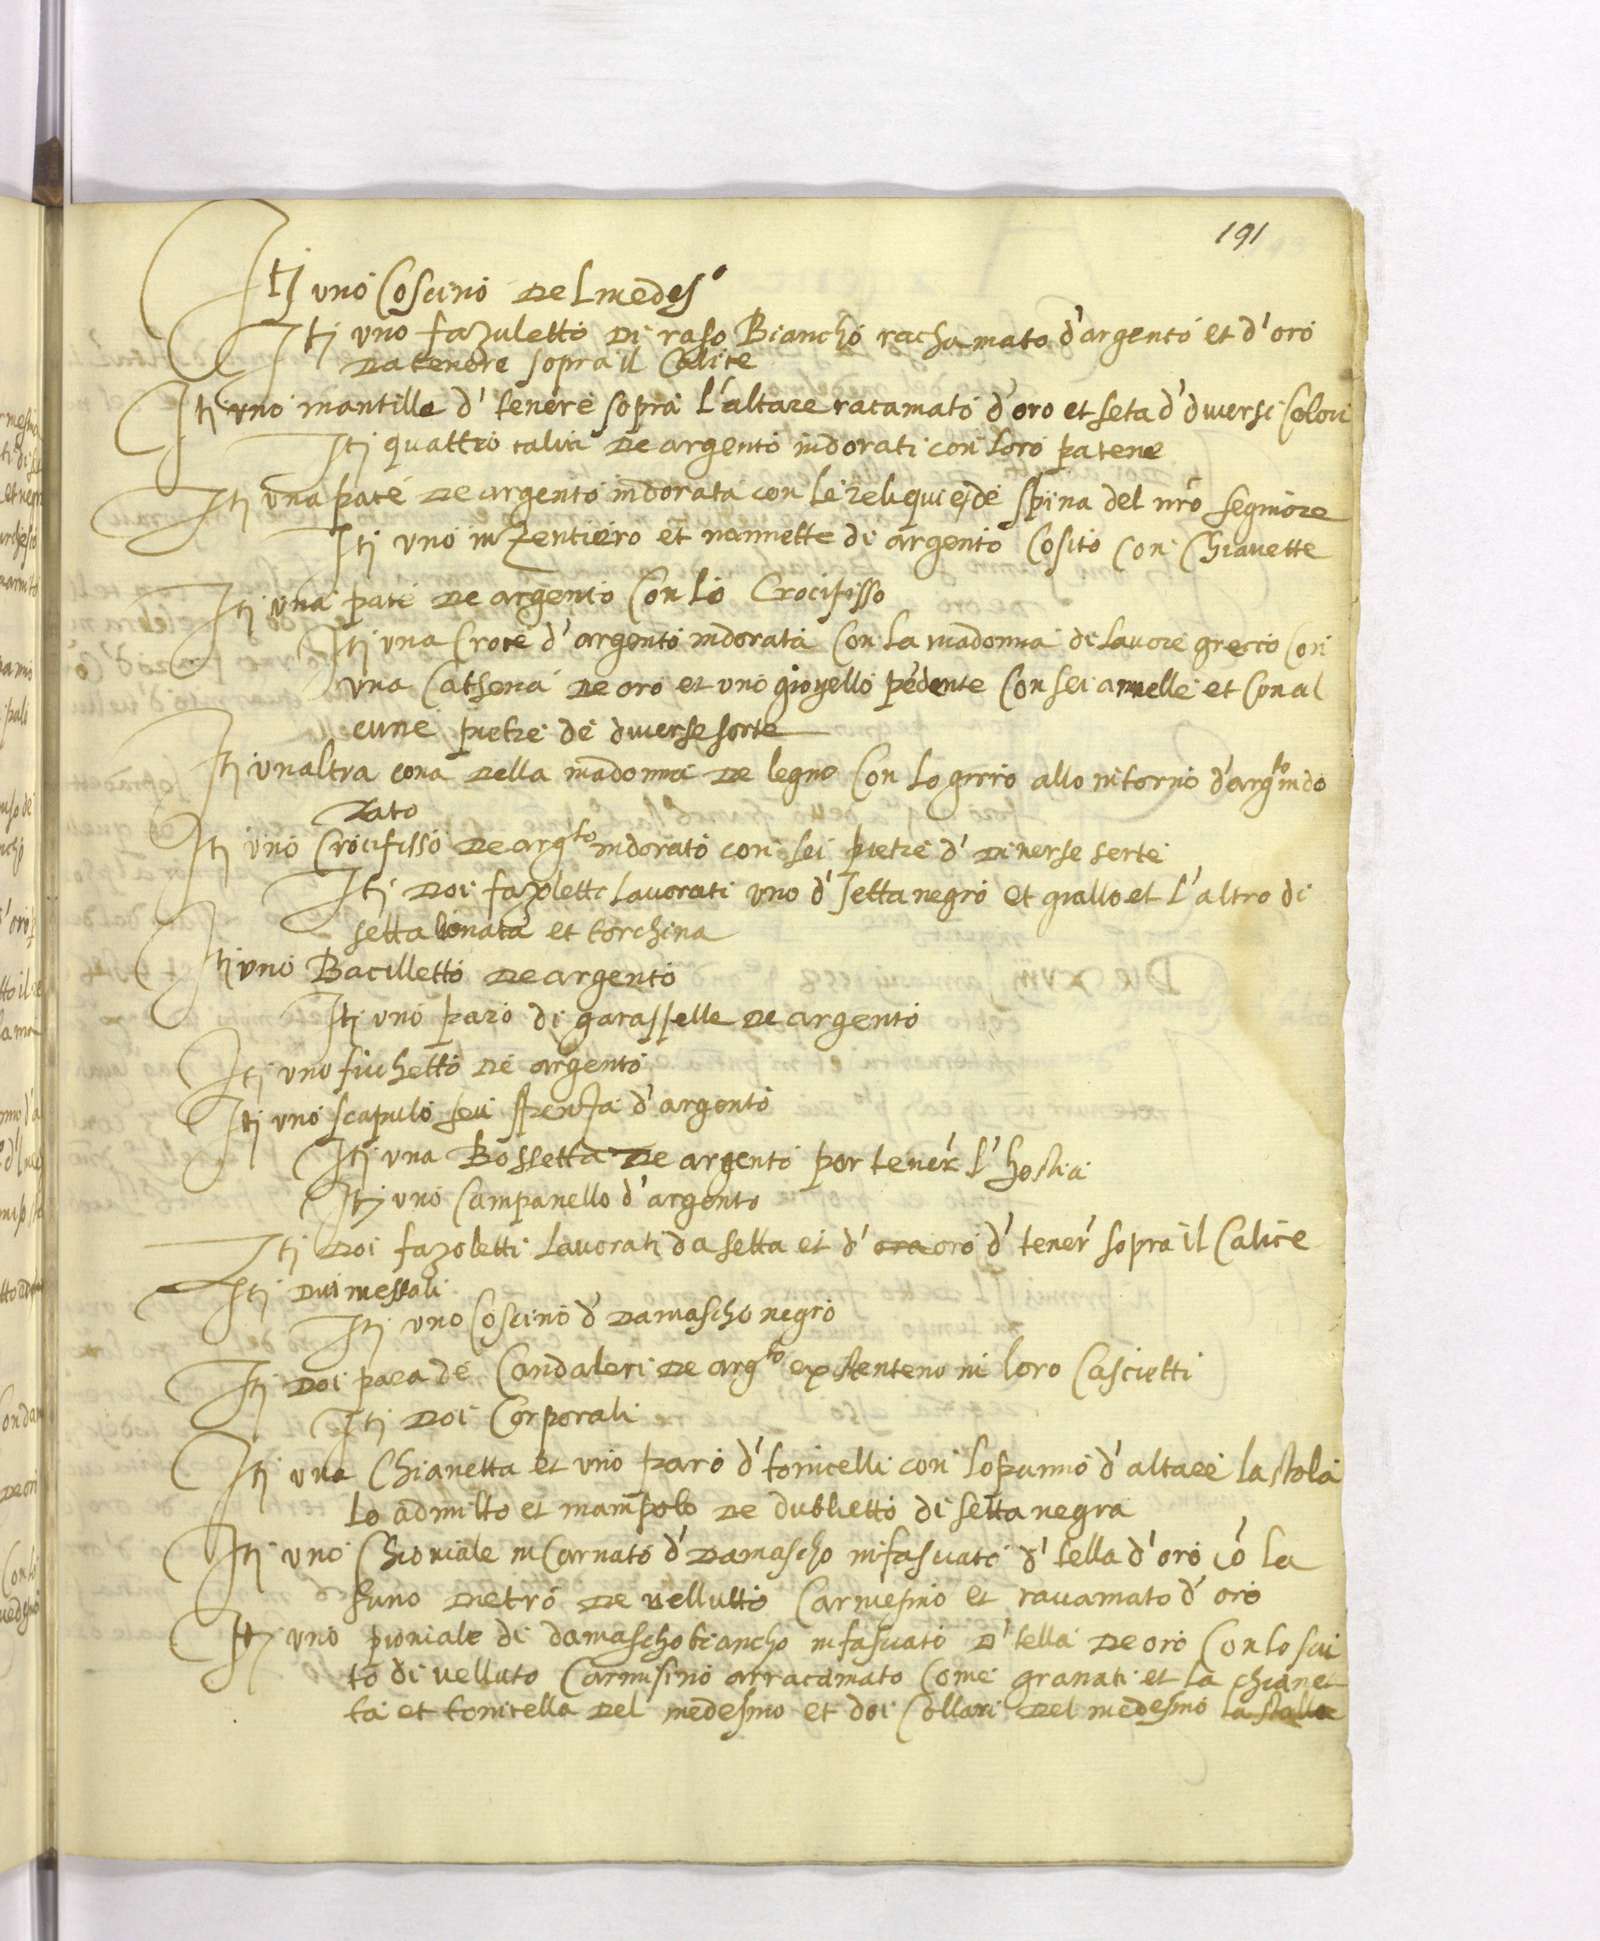 191
Itj uno Coscino del medes.o
Itj uno fazuletto di raso Biancho rachamato d'argento et d'oro
da tenere sopra il Calice
Itj uno mantille d' tenere sopra L'altare racamato d'oro et seta d' diversi Colori
Itj quattro calici de argento indorati con loro patene
Itj una pace de argento indorata con le reliquie de spina del nro segniore
Itj uno inzentiero et nannette di argento Cosito Con Chiavette
Itj una pace de argento Con lo Crocifisso
Itj una Croce d'argento indorata Con La madonna di Lavore greco Con
una Cathena de oro et uno gioyello pedente Con sei annelle et Con al
cune pietre de diverse sorte
Itj unaltra cona della madonna de legno Con Lo giro allo intorno d'arg.to indo
rato
Itj uno Crocifisso de arg.to indorato con sei pietre d' diverse sorte
Itj doi fazoletti Lavorati uno d' setta negro et giallo et L'altro di
setta lionata et torchina
Itj uno Bacilletto de argento
Itj uno paro di garaffelle de argento
Itj uno fiichetto de argento
Itj uno scapulo seu spenza d'argento
Itj una Bossetta de argento per tener L'hostia
Itj uno Campanello d'argento
Itj doi fazoletti Lavorati da setta et d' ora oro d' tener sopra il Calice
Itj dui messali
Itj uno Coscino d' damascho negro
Itj doi para de Candaleri de arg.to existenteno ni loro Cascietti
Itj doi Corporali
Itj una Chianetta et uno paro d' tonicelli con Lo panno d'altare La stola
Lo admitto et manipolo de dubletto di setta negra
Itj uno Chioviale inCarnato d' damascho infasciato d' tella d'oro có La
funo dietro de vellutto Carmesino et racamato d'oro
Itj uno pioniale di damascho biancho infasciato d' tella de oro Con lo scu
to di velluto Carmisino arracamato Come granati et La chianet
ta et tonicella del medesmo et doi Collari del medesmo La stolla